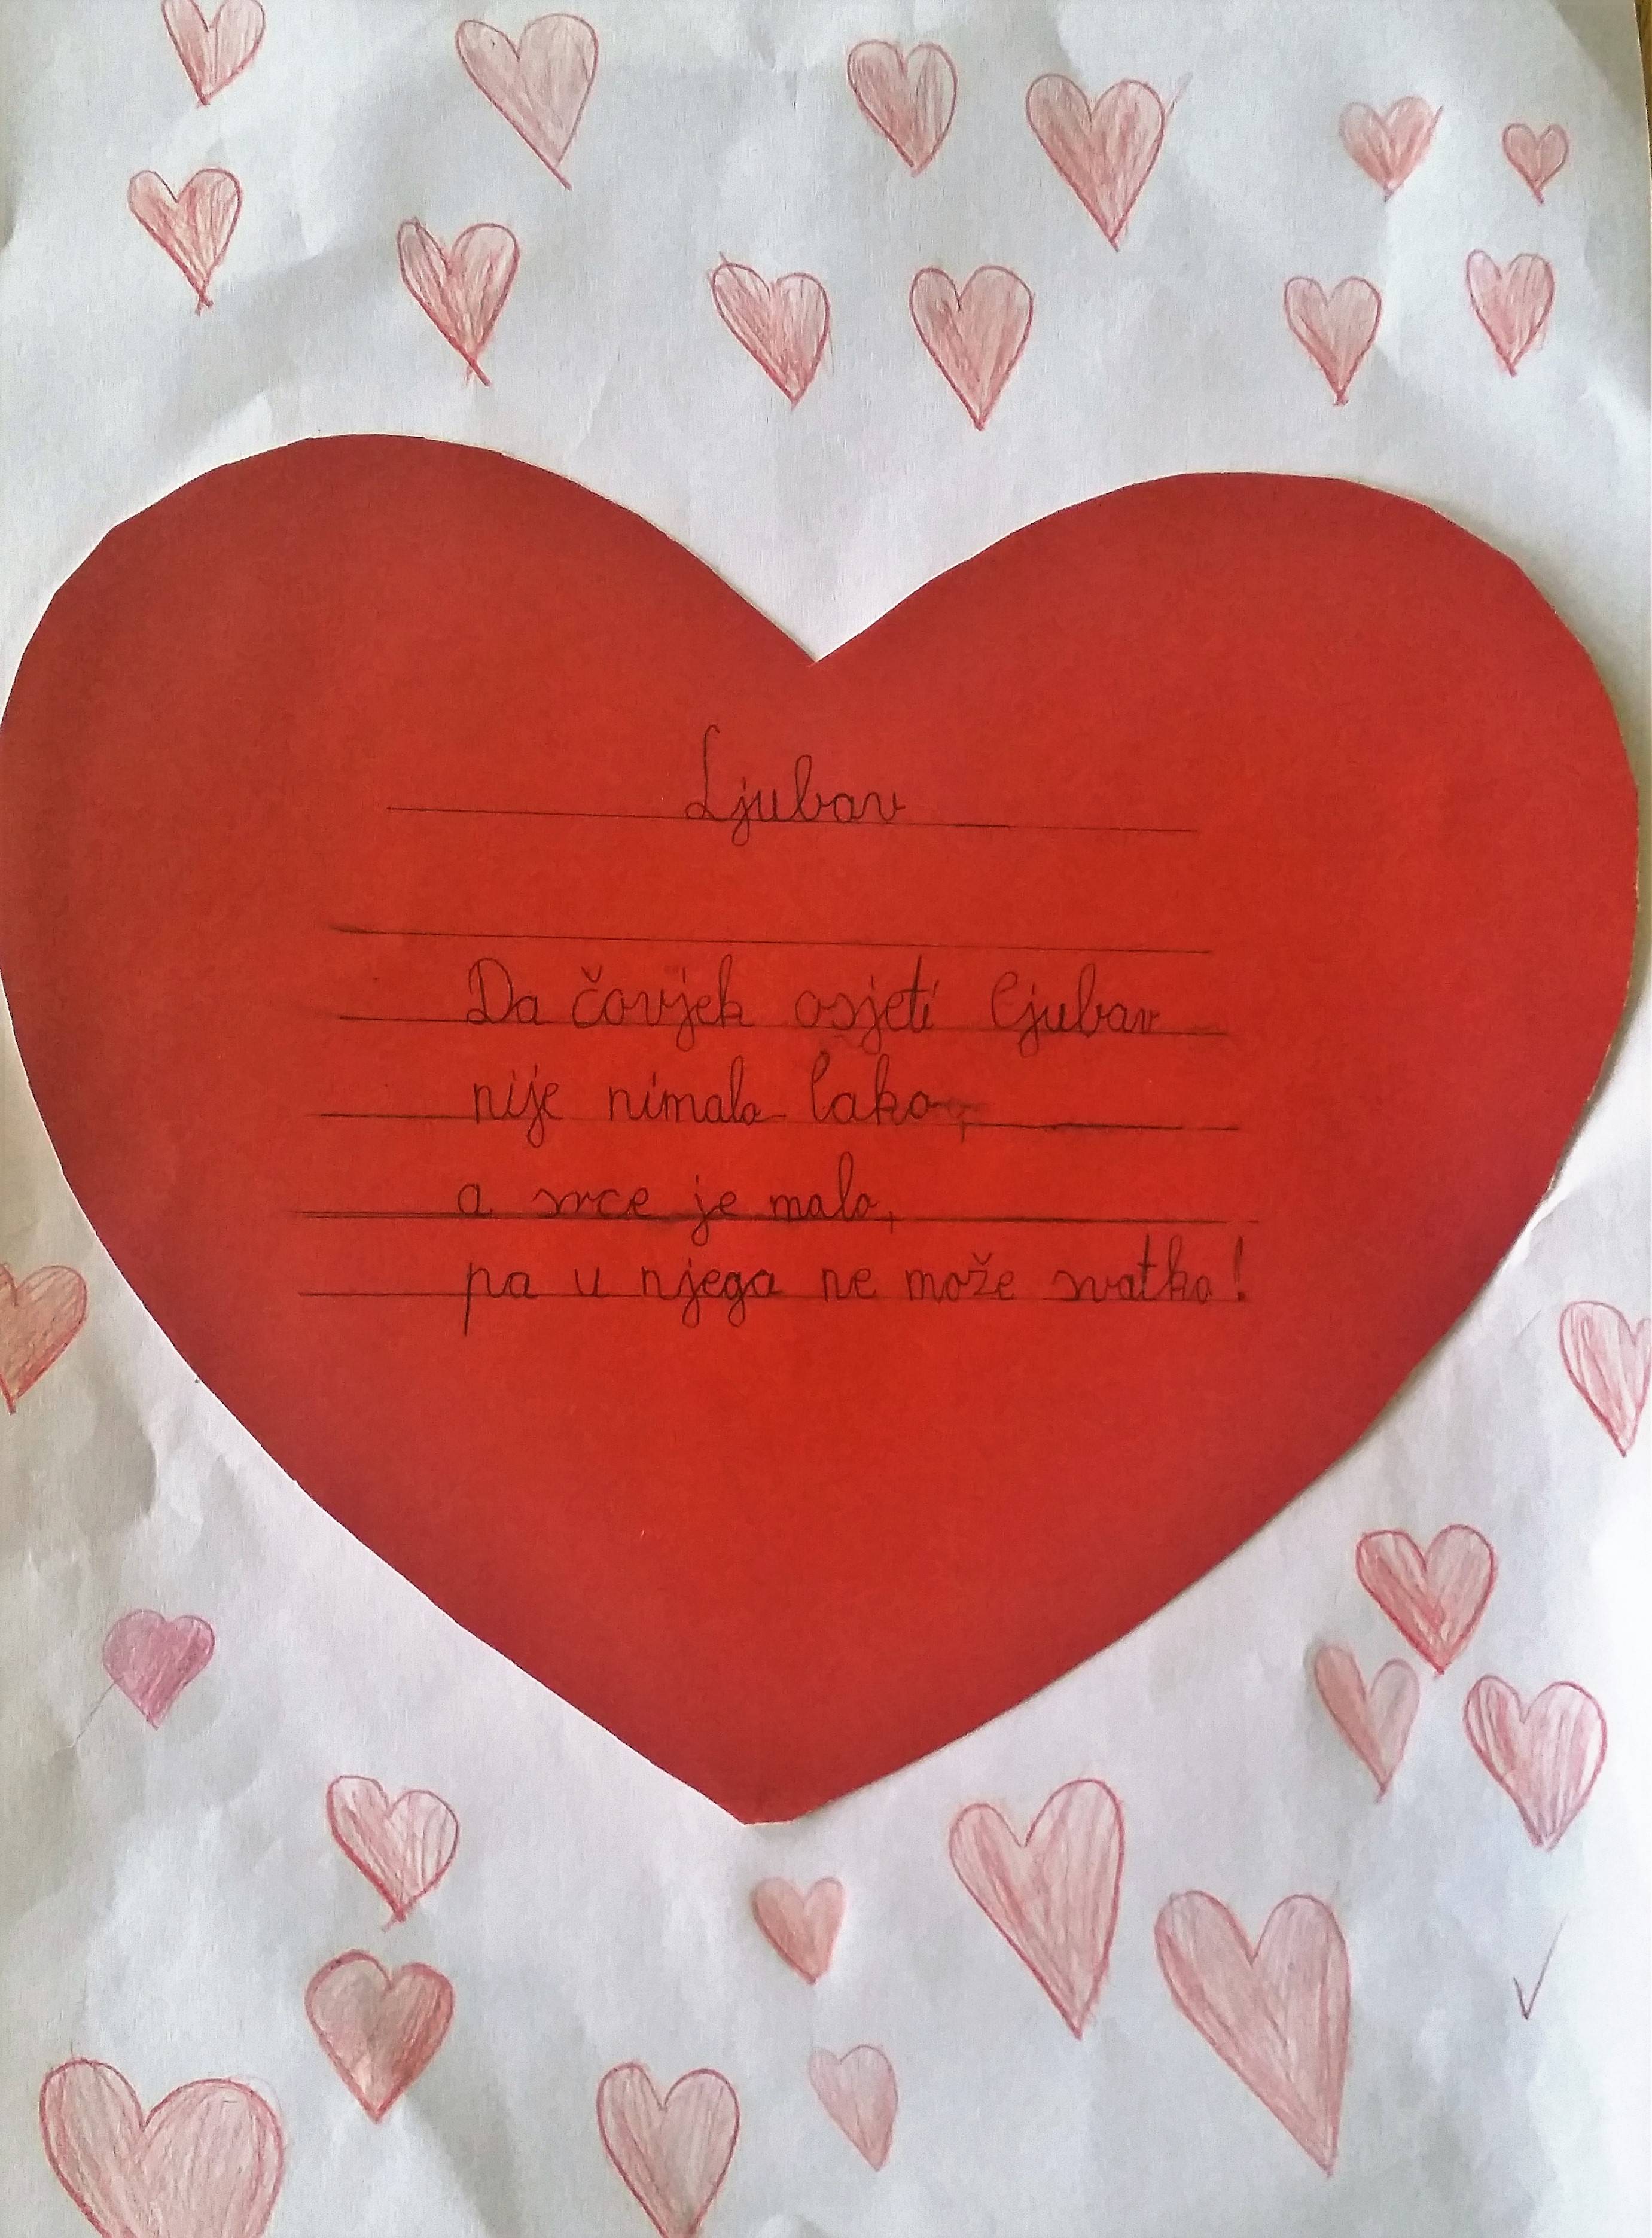 Ljubav
Da čovjek osjeti ljubav
nije nimalo lako,
a srce je malo,
pa u njega ne može svatko!